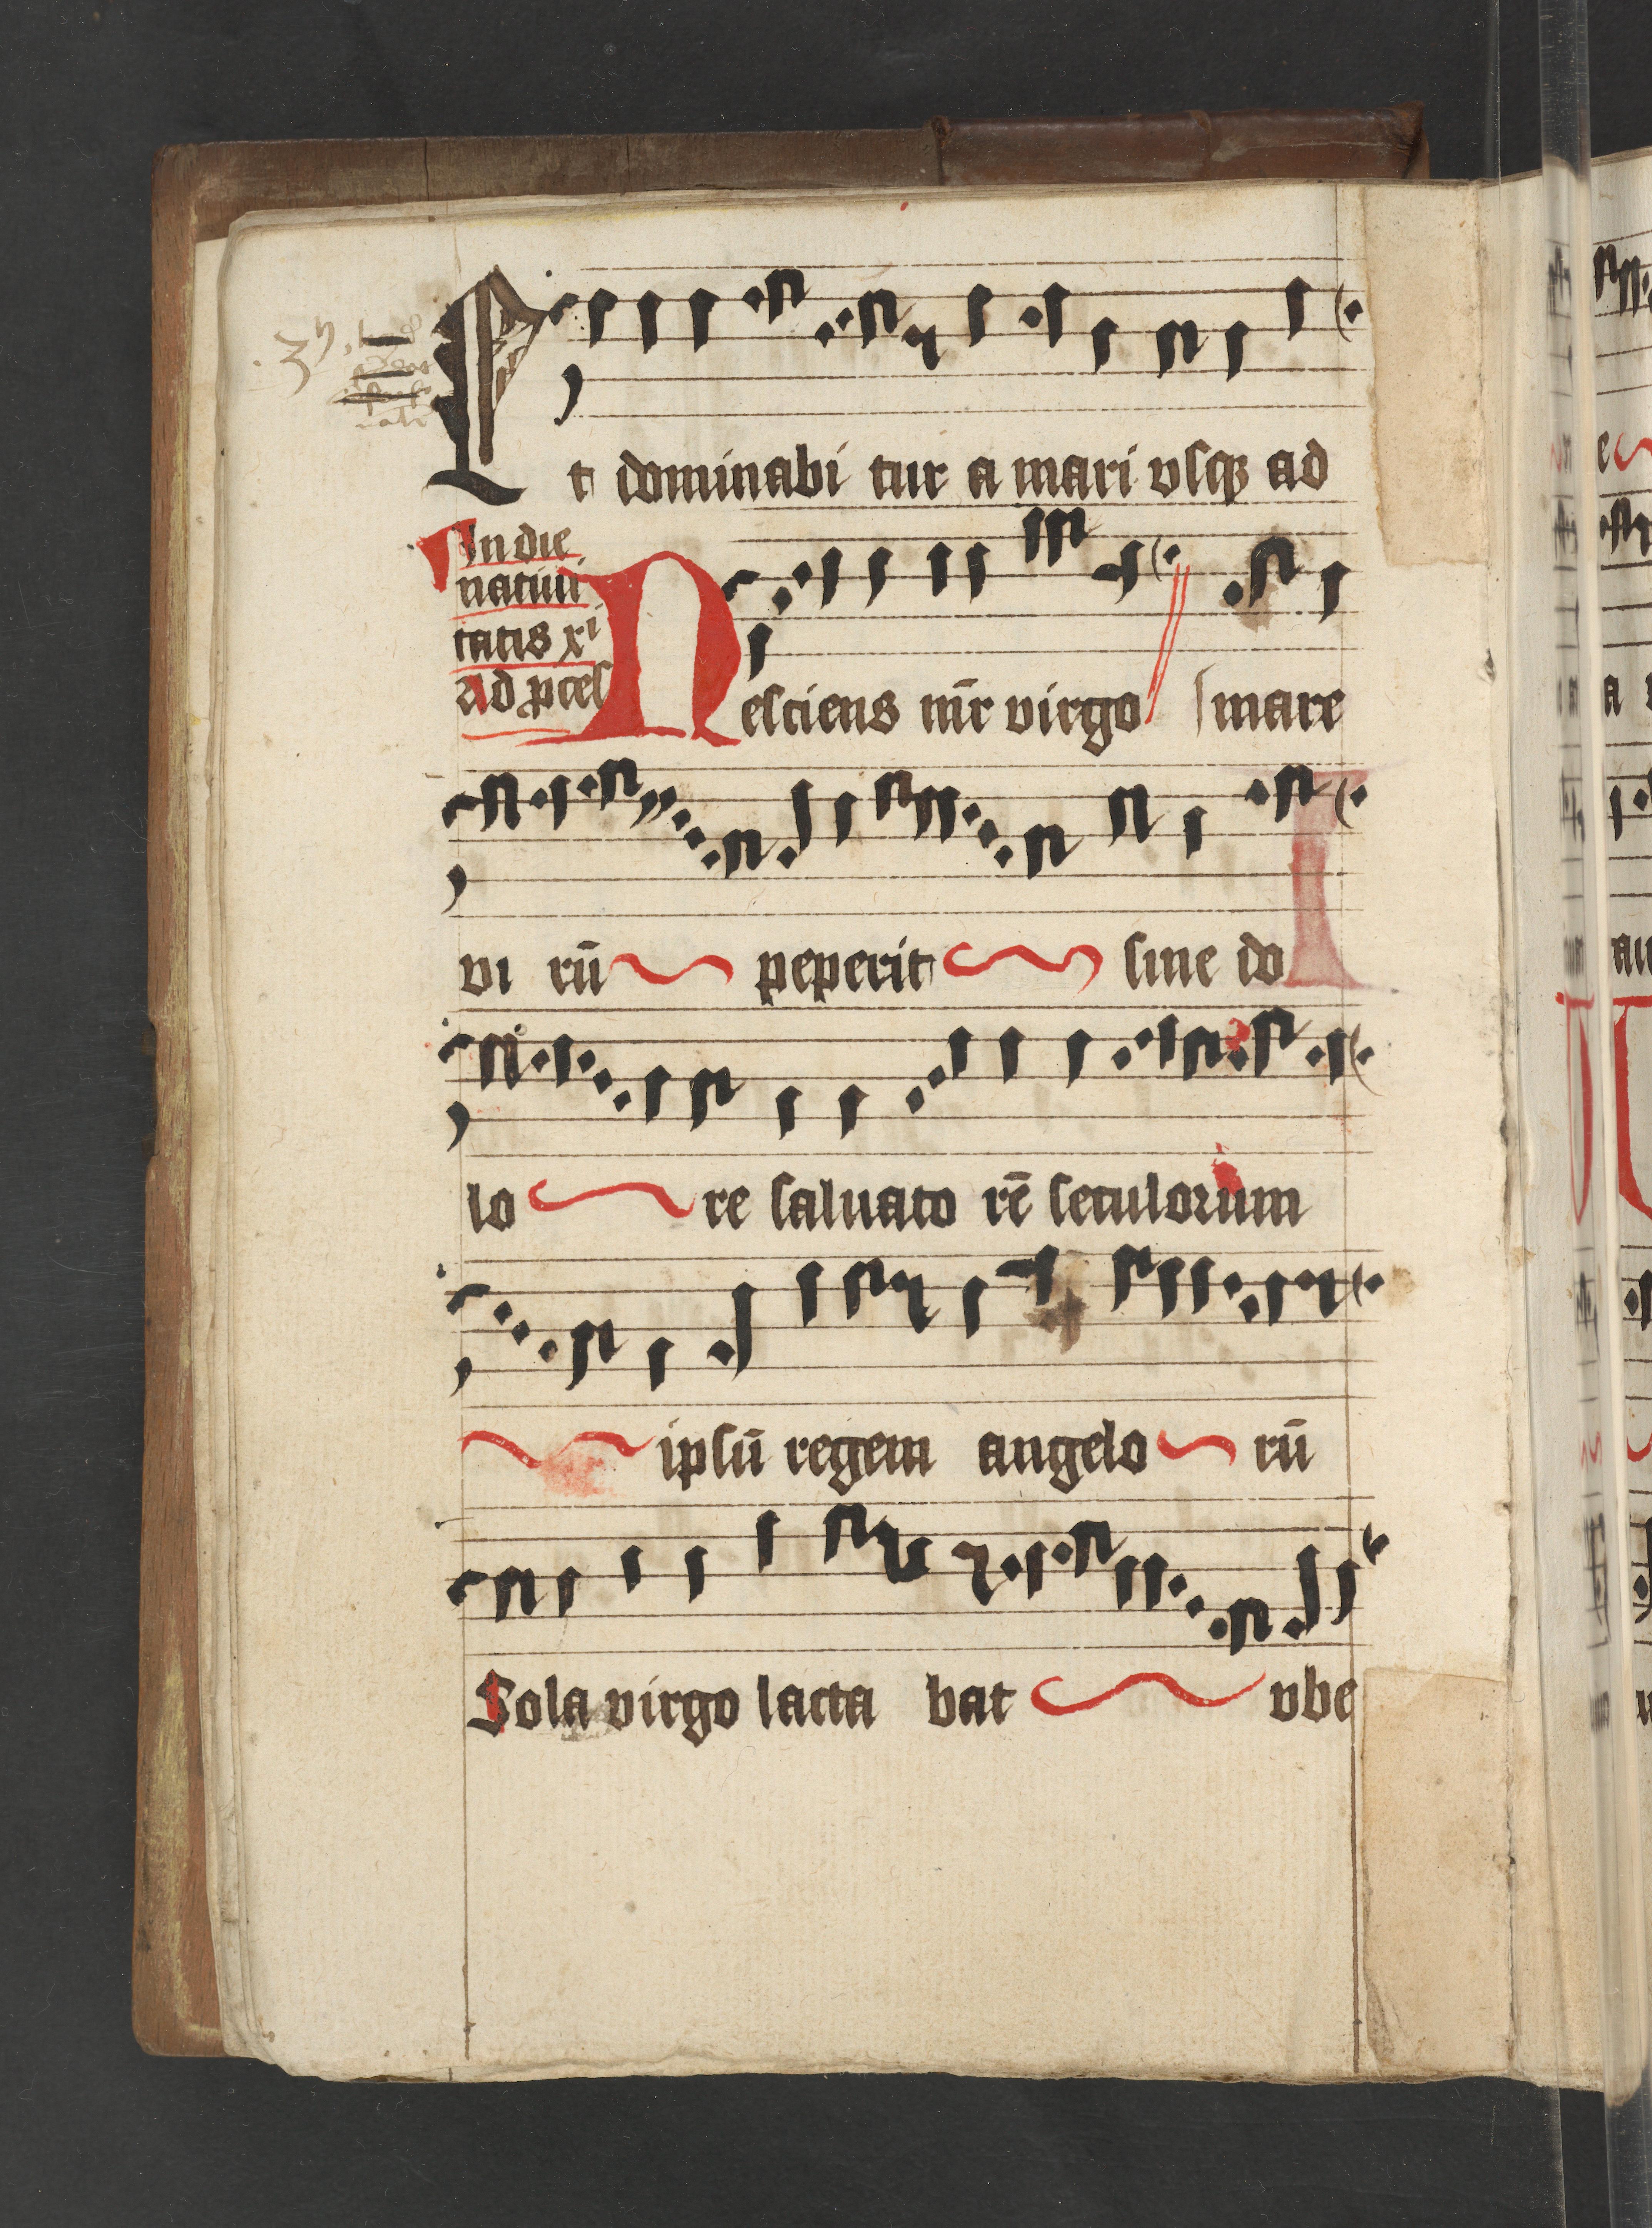 Et dominabi tur a mari vsqꝫ ad
In die
natiui
tatis xͥ
ad ꝓces
Nesciens mr̄ virgo mare
vi rū peperit sine do
lo re saluato rē seculorum
ipsū regem angelo rū
Sola virgo lacta bat vbe